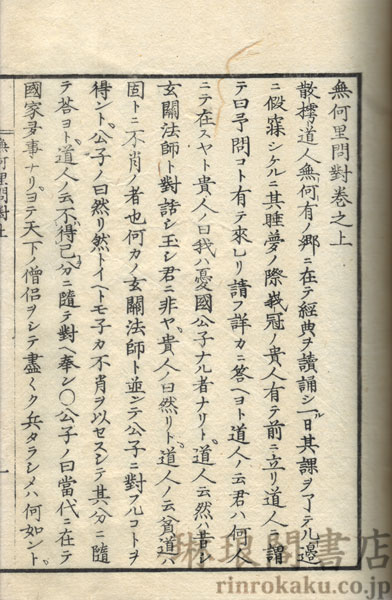 無何里問對卷之上
散樗道人無何有ノ郷ニ在テ經典ヲ讀誦シ一日其課ヲ了テ几邊
ニ假寐シケルニ其睡夢ノ際峩冠ノ貴人有テ前ニ立リ道人ニ謂
テ曰予問コト有テ來レリ請フ詳カニ答ヘヨト道人ノ云君ハ何人
ニテ在スヤト貴人ノ曰我ハ憂國公子ナル者ナリト道人云然ハ昔シ
玄關法師ト對話シ玉シ君ニ非ヤ貴人ノ曰然リト道人ノ云貧道ハ
固トニ不肖ノ者也何カノ玄關法師ト並ンテ公子ニ對フルコトヲ
得ント公子ノ曰然リ然トイヘトモ子カ不肖ヲ以セスシテ其分ニ隨
テ荅ヨト道人ノ云不得已分ニ隨テ對ヘ奉ン〇公子ノ曰當代ニ在テ
國家多事ナリヨテ天下ノ僧侶ヲシテ盡ク兵タラシメハ何如ント
無何里問對上
一
琳琅閣書店
rinrokaku.co.jp